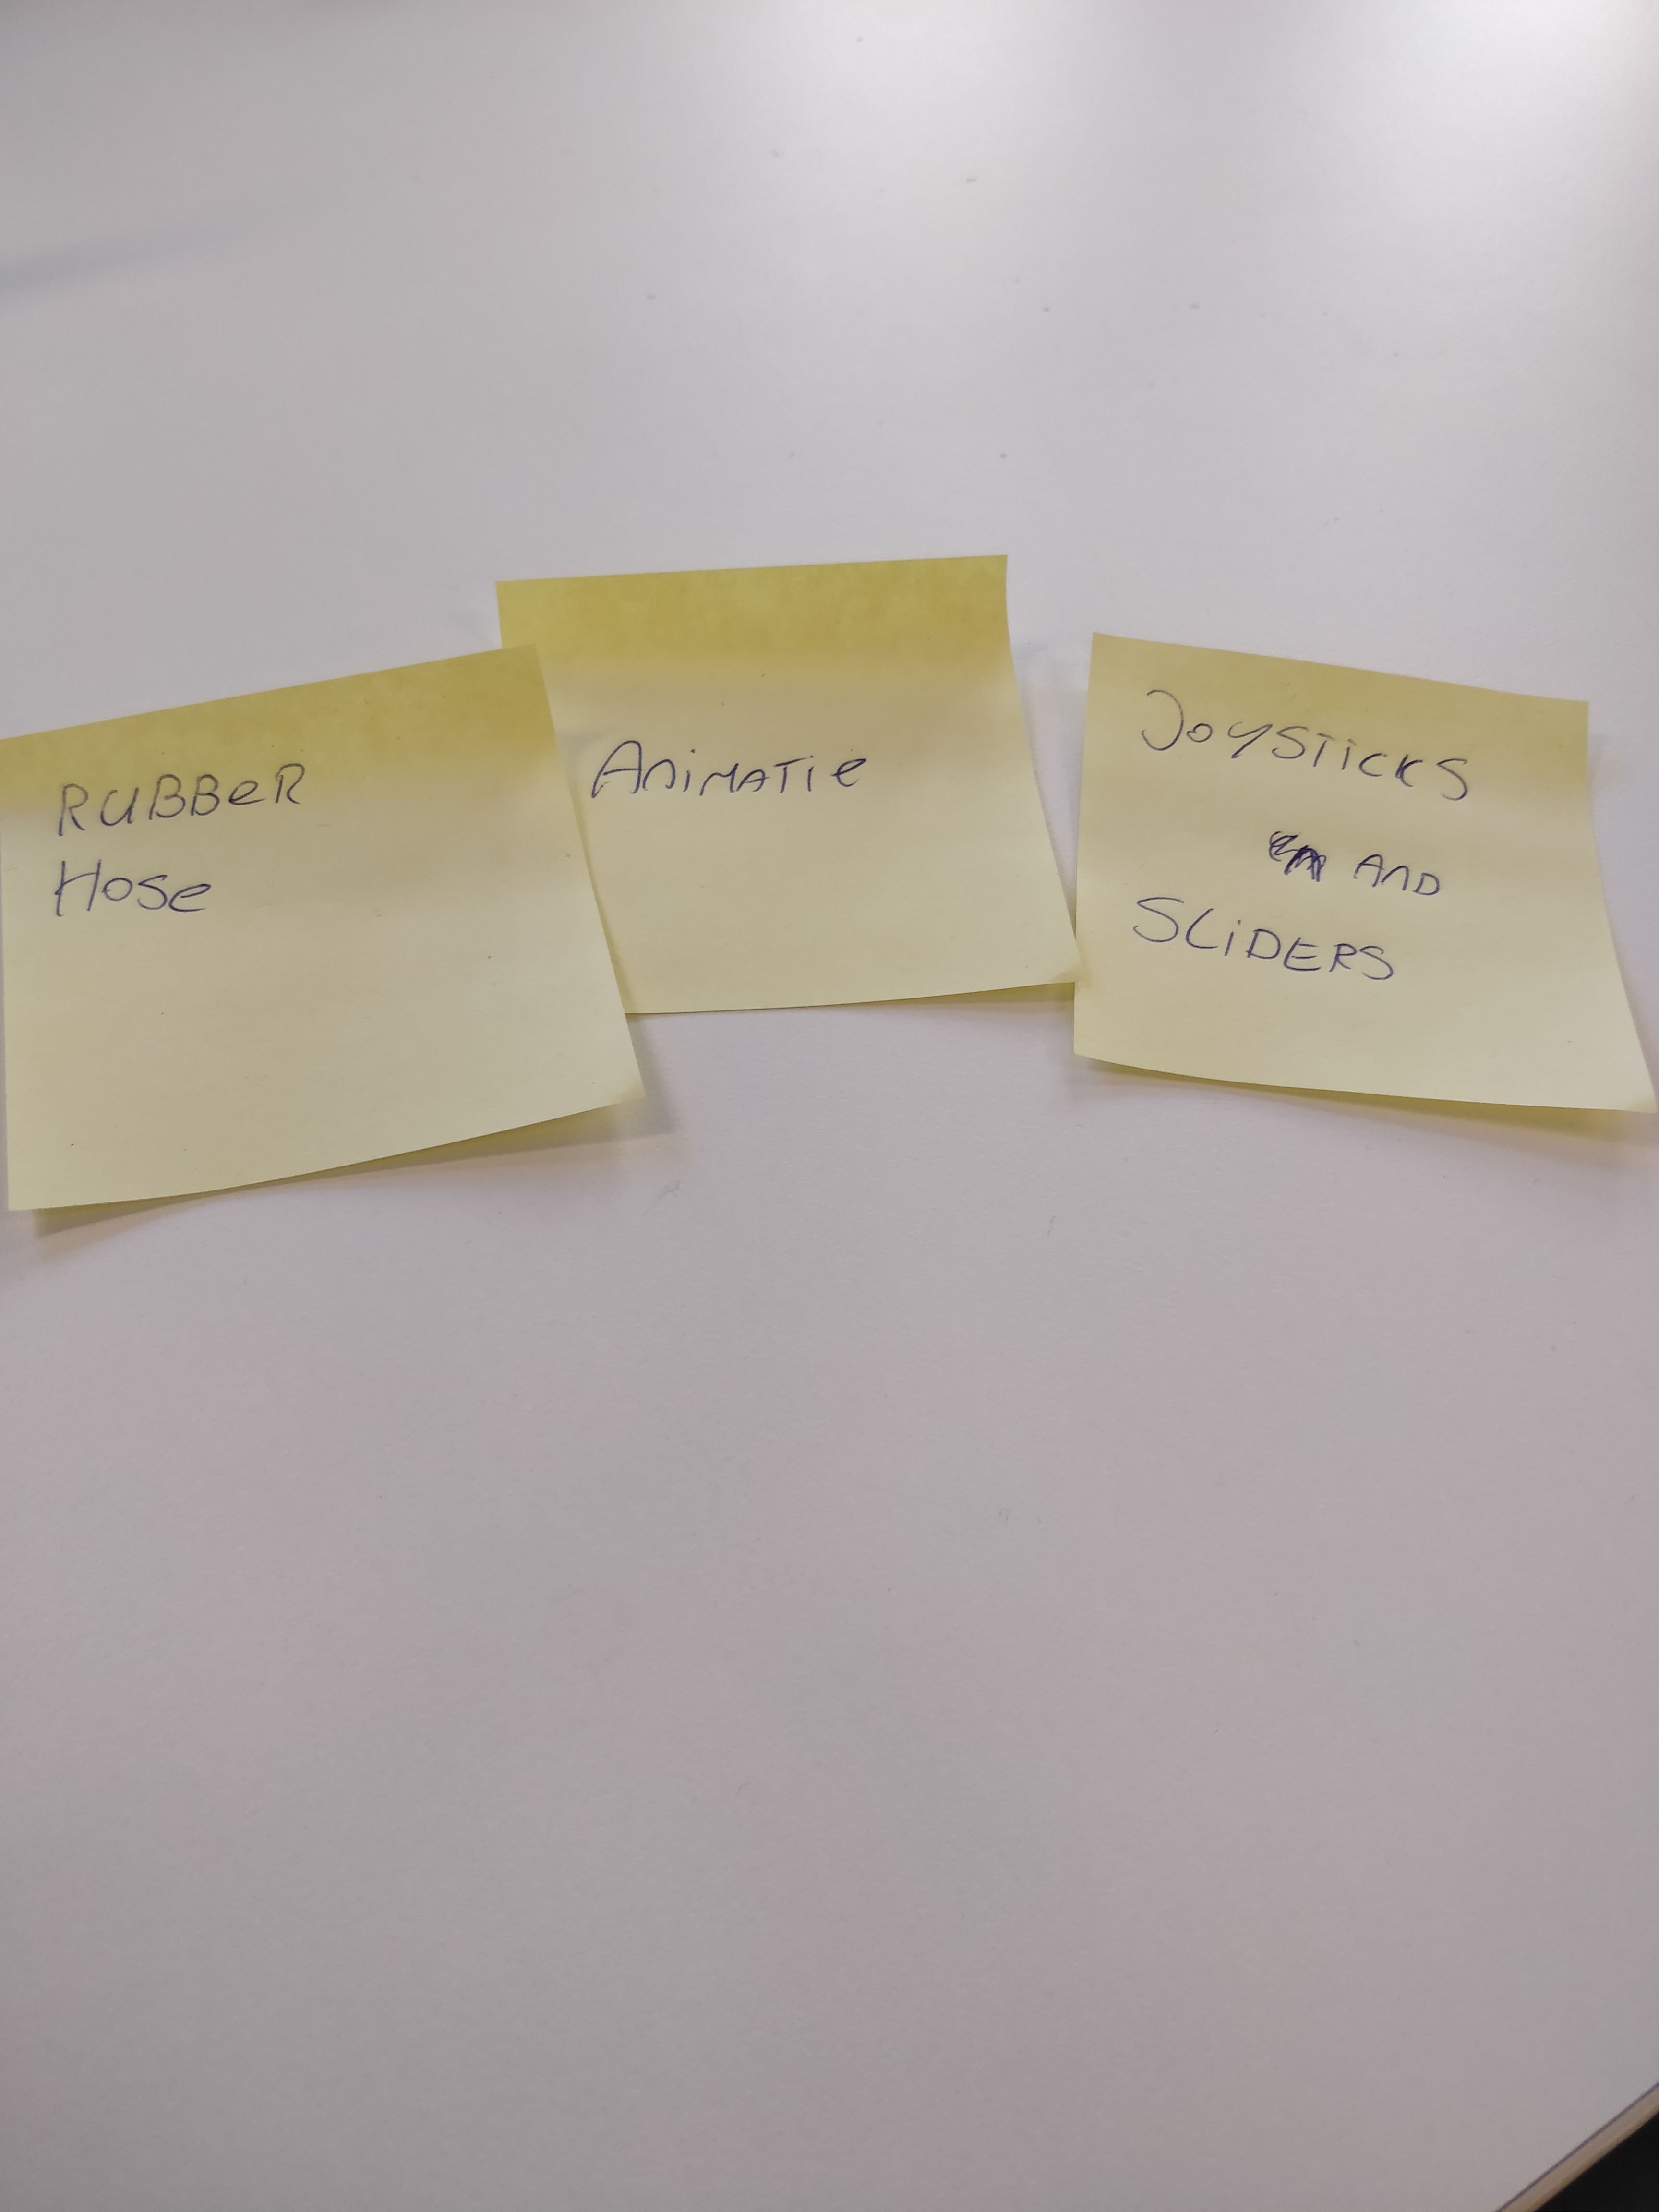 RUBBeR
Hose
AniMATie
JoYSTicKS
AnD
SLiDERS